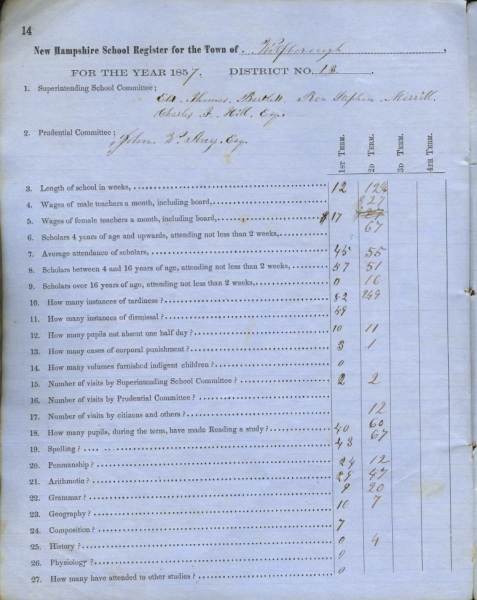 14
New Hampshire School Register for the Town of Wolfborough,
FOR THE YEAR 1857, DISTRICT NO. 18.
1. Superintending School Committee;
Eld. Thomas Bartlett, Rev Stephen Merrill,
Charles F. Hill, Esq.
2. Prudential Committee; John Hay, Esq
1ST TERM. 2D TERM. 3D TERM. 4TH TERM.
3. Length of school in weeks, 12 12
4. Wages of male teachers a month, including board, $27
5. Wages of female teachers a month, including board, $17
6. Scholars 4 years of age and upwards, attending not less than 2 weeks, 67
7. Average attendance of scholars, 45 55
8. Scholars between 4 and 16 years of age, attending not less than 2 weeks, 57 51
9. Scholars over 16 years of age, attending not less than 2 weeks, 0 16
10. How many instances of tardiness? 82 249
11. How many instances of dismissal? 49
12. How many pupils not absent one half day? 10 11
13. How many cases of corporal punishment? 3 1
14. How many volumes furnished indigent children? 0
15. Number of visits by Superintending School Committee? 2 2
16. Number of visits by Prudential Committee?
17. Number of visits by citizens and others? 12
18. How many pupils, during the term, have made Reading a study? 40 60
19. Spelling? 43 67
20. Penmanship? 24 12
21. Arithmetic? 29 47
22. Grammar? 8 20
23. Geography? 10 7
24. Composition? 7
25. History? 0 4
26. Physiology? 0
27. How many have attended to other studies? 0